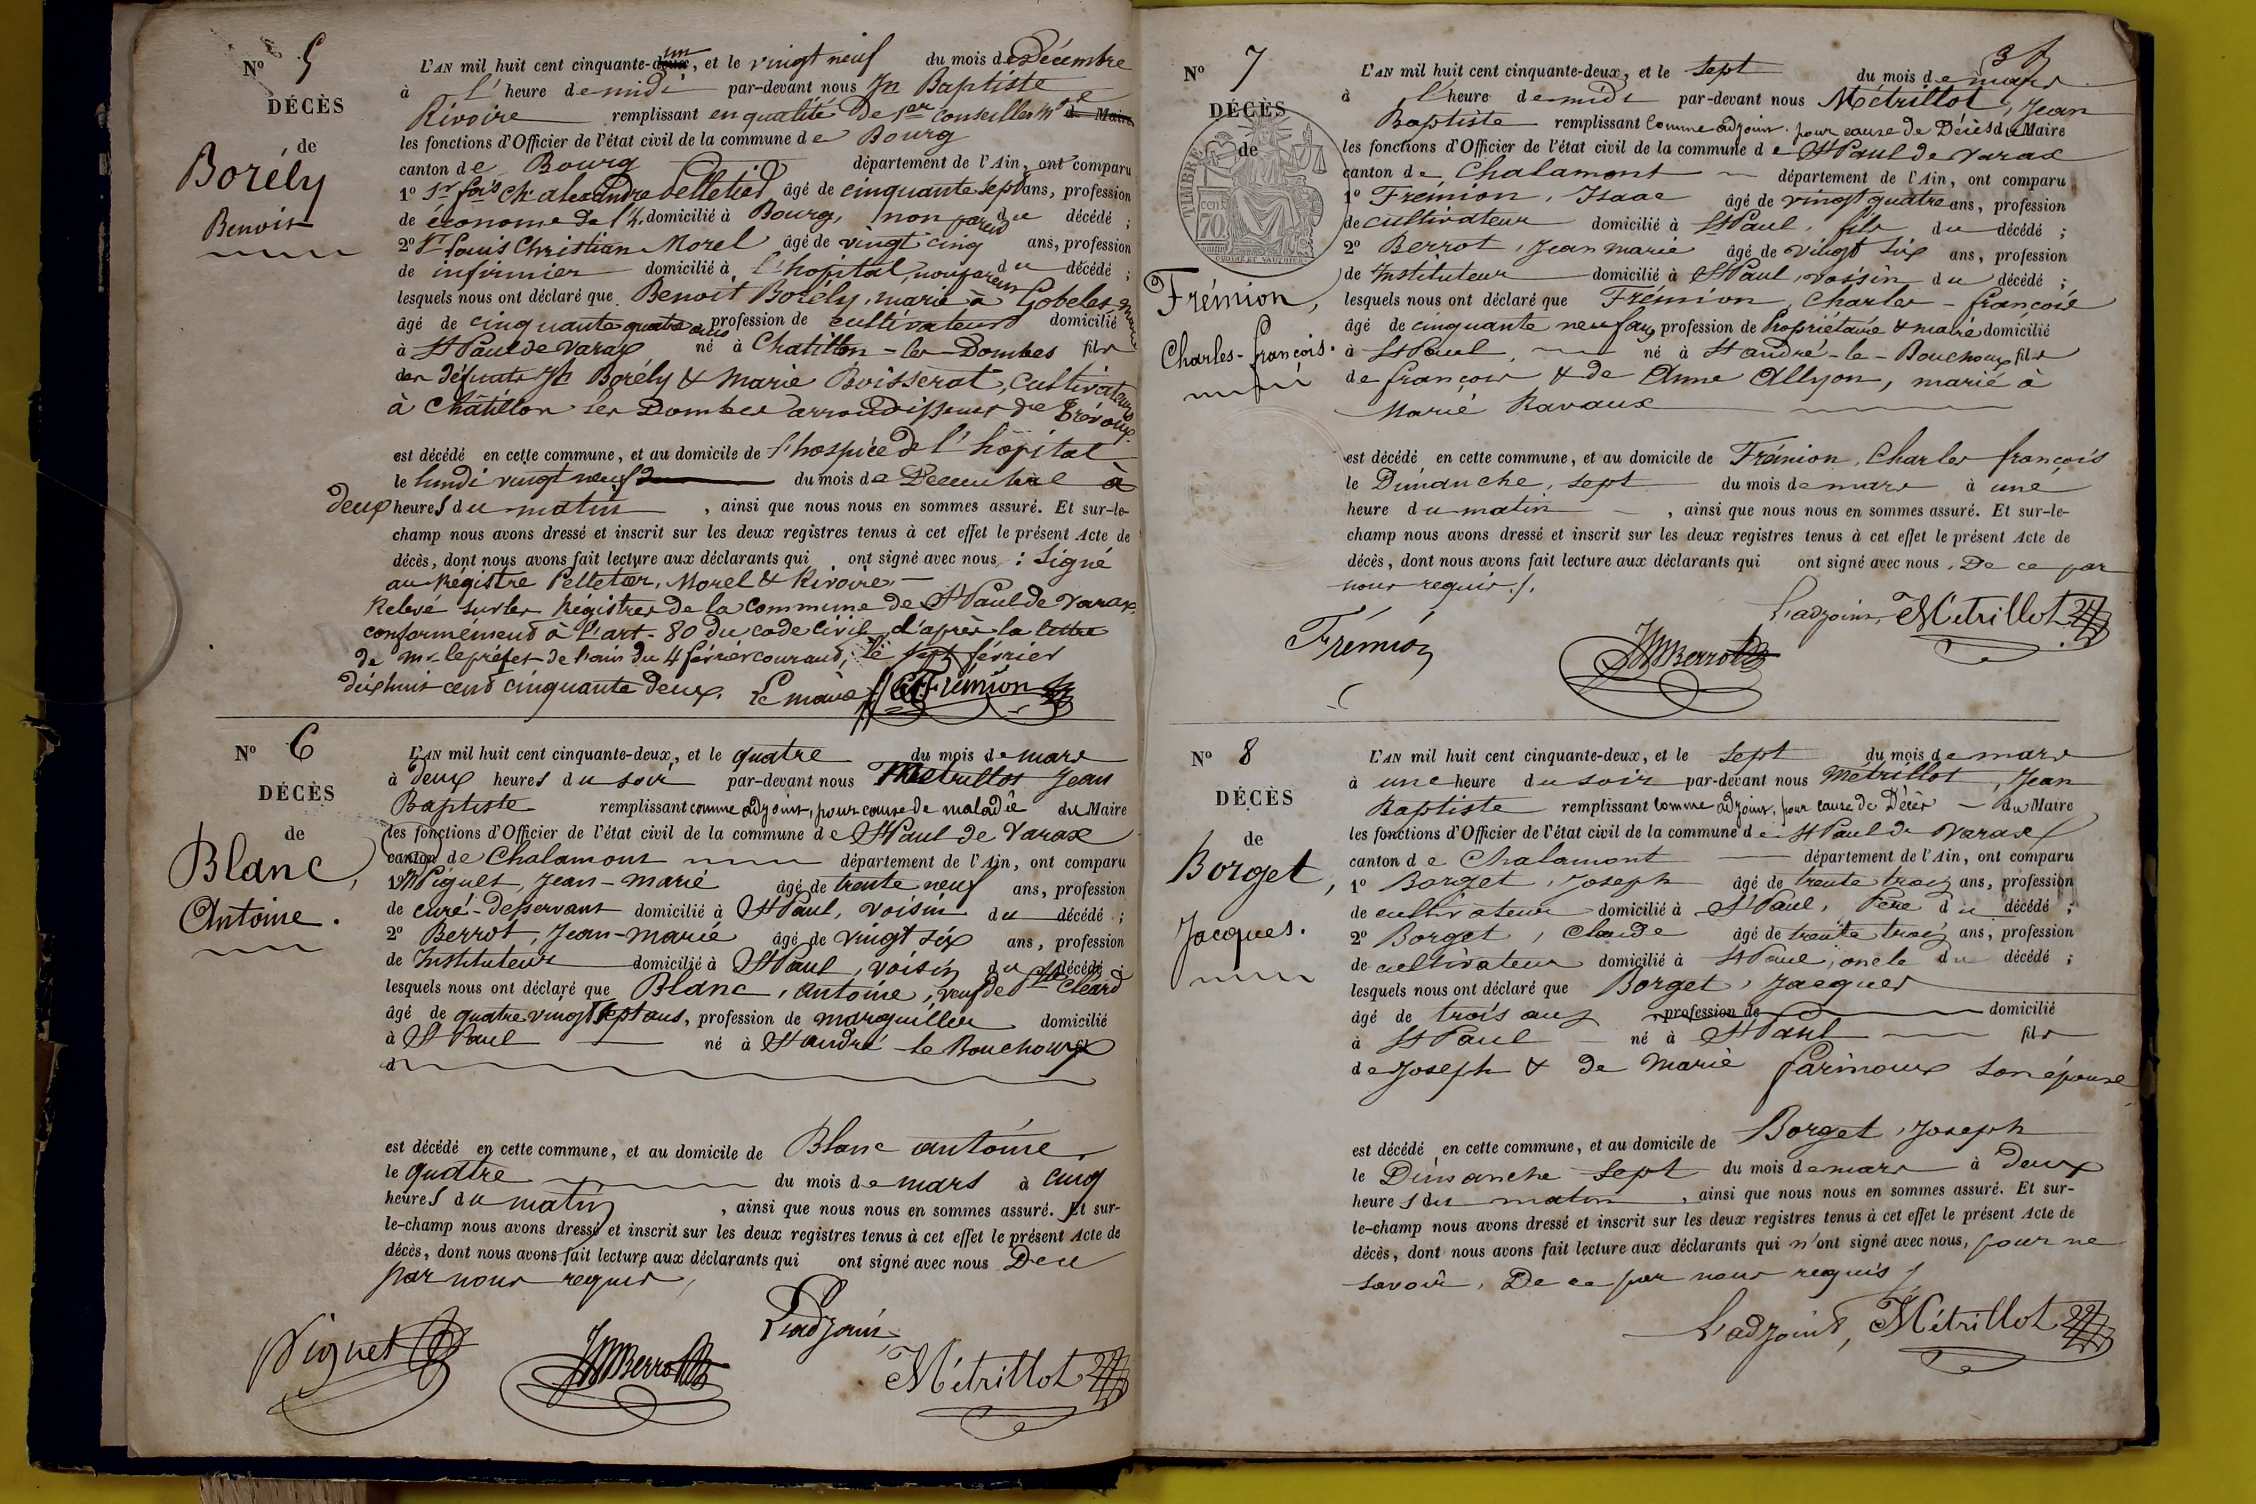 Nº 5
DÉCÈS
de
Borély
Benoit
L'AN mil huit cent cinquante-deux un, et le vingt neuf du mois de Décembre
à l' heure de midi par-devant nous Jn Baptiste
Rivoire remplissant en qualité de 1er conseiller mal de Maire
les fonctions d'Officier de l'état civil de la commune de Bourg
canton de Bourg département de l'Ain, ont comparu
1º Sr fois Ch. alexandre Pelletier âgé de cinquante sept ans, profession
de économe de l'h. domicilié à Bourg, non parent du décédé ;
2º Sr Louis Christian Morel âgé de vingt cinq ans, profession
de infirmier domicilié à l'hôpital, non parent du décédé ;
lesquels nous ont déclaré que Benoit Borély, marié à Gobelet,
âgé de cinquante quatre ans profession de cultivateur domicilié
à St Paul de Varax né à Chatillon-les-Dombes fils
des défunts Jh Borély & Marie Boisserat, cultivateurs
à Châtillon les Dombes arrondissement de Trévoux.
est décédé en cette commune, et au domicile de l'hospice de l'hôpital
le lundi vingt neuf du mois de Décembre à
deux heures du matin , ainsi que nous nous en sommes assuré. Et sur-le-
champ nous avons dressé et inscrit sur les deux registres tenus à cet effet le présent Acte de
décès, dont nous avons fait lecture aux déclarants qui ont signé avec nous : Signé
au Régistre Pelletier, Morel & Rivoire
Relevé sur les Régistres de la commune de St Paul de Varax
conformément à l'art. 80 du code civil d'après la lettre
de Mr le préfet de l'ain du 4 février courant, le sept février
dix huit cent cinquante deux. Le maire Frémion
Nº 6
DÉCÈS
de
Blanc,
Antoine.
L'AN mil huit cent cinquante-deux, et le quatre du mois de mars
à deux heures du soir par-devant nous Métrillot Jean
Baptiste remplissant comme adjoint, pour cause de maladie du Maire
les fonctions d'Officier de l'état civil de la commune de St Paul de Varax
canton de Chalamont département de l'Ain, ont comparu
1º Viguet, Jean-marié âgé de trente neuf ans, profession
de curé-desservant domicilié à St Paul, voisin du décédé ;
2º Berrot, Jean-marié âgé de vingt six ans, profession
de Instituteur domicilié à St Paul, voisin du décédé ;
lesquels nous ont déclaré que Blanc, antoine, veuf de Cléard
âgé de quatre vingt sept ans, profession de marguillier domicilié
à St Paul né à St andré-le-Bouchoux
d
est décédé en cette commune, et au domicile de Blanc antoine
le quatre du mois de mars à cinq
heures du matin , ainsi que nous nous en sommes assuré. Et sur-
le-champ nous avons dressé et inscrit sur les deux registres tenus à cet effet le présent Acte de
décès, dont nous avons fait lecture aux déclarants qui ont signé avec nous De ce
par nous requis
L'adjoint,
Viguet JMBerrot Métrillot
37
Nº 7
DÉCÈS
de
TIMBRE
70 cent
Frémion,
Charles-françois.
L'AN mil huit cent cinquante-deux, et le sept du mois de mars
à l'heure de midi par-devant nous Métrillot, Jean
Baptiste remplissant comme adjoint. pour cause de Décès du Maire
les fonctions d'Officier de l'état civil de la commune de St Paul de Varax
canton de Chalamont département de l'Ain, ont comparu
1º Frémion, Isaac âgé de vingt quatre ans, profession
de cultivateur domicilié à St Paul, fils du décédé ;
2º Berrot, Jean marié âgé de vingt six ans, profession
de Instituteur domicilié à St Paul, voisin du décédé ;
lesquels nous ont déclaré que Frémion, Charles-françois
âgé de cinquante neuf ans profession de Propriétaire & maire domicilié
à St Paul, né à St andré-le-Bouchoux fils
de françois & de Anne Allyon, marié à
Marié Ravaux
est décédé en cette commune, et au domicile de Frémion, Charles françois
le Dimanche, sept du mois de mars à une
heure du matin , ainsi que nous nous en sommes assuré. Et sur-le-
champ nous avons dressé et inscrit sur les deux registres tenus à cet effet le présent Acte de
décès, dont nous avons fait lecture aux déclarants qui ont signé avec nous. De ce par
nous requis.
L'adjoint, Métrillot
Frémion JMBerrot
Nº 8
DÉCÈS
de
Borget,
Jacques.
L'AN mil huit cent cinquante-deux, et le sept du mois de mars
à une heure du soir par-devant nous Métrillot, Jean
Baptiste remplissant comme adjoint, pour cause de Décès du Maire
les fonctions d'Officier de l'état civil de la commune de St Paul de Varax
canton de Chalamont département de l'Ain, ont comparu
1º Borget, Joseph âgé de trente trois ans, profession
de cultivateur domicilié à St Paul, Père du décédé ;
2º Borget, Claude âgé de trente trois ans, profession
de cultivateur domicilié à St Paul, oncle du décédé ;
lesquels nous ont déclaré que Borget, Jacques
âgé de trois ans profession de domicilié
à St Paul né à St Paul fils
de Joseph & de Marie Parinoux son épouse
est décédé en cette commune, et au domicile de Borget, Joseph
le Dimanche sept du mois de mars à deux
heures du matin , ainsi que nous nous en sommes assuré. Et sur-
le-champ nous avons dressé et inscrit sur les deux registres tenus à cet effet le présent Acte de
décès, dont nous avons fait lecture aux déclarants qui n'ont signé avec nous, pour ne
savoir. De ce par nous requis
L'adjoint, Métrillot